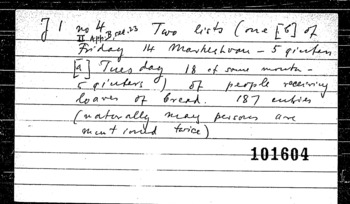 J 1 no 4 Two lists (one [b] of
II App. B sec. 23
Friday 14 Marheshvan - 5 qintars
[a] Tuesday 18 of same month -
5 qintars) of people receiving
loaves of bread. 187 entries
(naturally many persons are
mentioned twice)
101604